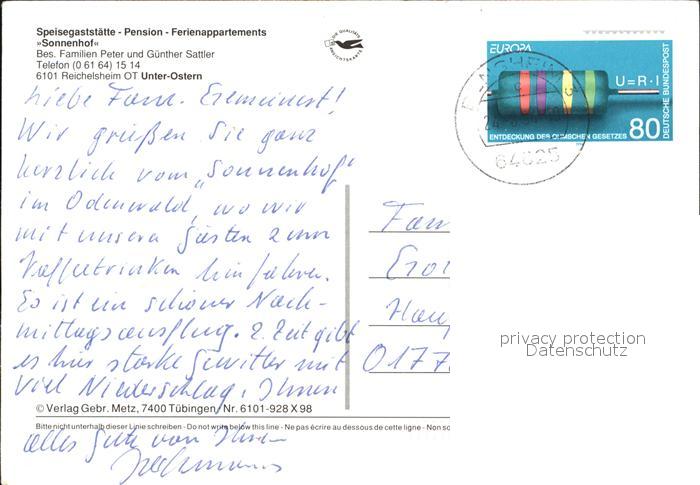 Speisegaststätte - Pension - Ferienappartements
»Sonnenhof«
Bes. Familien Peter und Günther Sattler
Telefon (0 61 64) 15 14
6101 Reichelsheim OT Unter-Ostern
EUROPA
U=R·I
DEUTSCHE BUNDESPOST
ENTDECKUNG DES OHMSCHEN GESETZES 80
64625
Liebe Fam.
Wir grüßen Sie ganz
herzlich vom „Sonnenhof"
im Odenwald, wo wir
mit unseren Gästen zum
Kaffeetrinken hinfahren.
Es ist ein schöner Nach-
mittagsausflug. Z. Zeit gibt
es hier starke Gewitter mit
viel Niederschlag. Ihnen
alles Gute von Ihren
Fam
Hau
0177
privacy protection
Datenschutz
© Verlag Gebr. Metz, 7400 Tübingen, Nr. 6101-928 X 98
Bitte nicht unterhalb dieser Linie schreiben - Do not write below this line - Ne pas écrire au dessous de cette ligne - Non sc